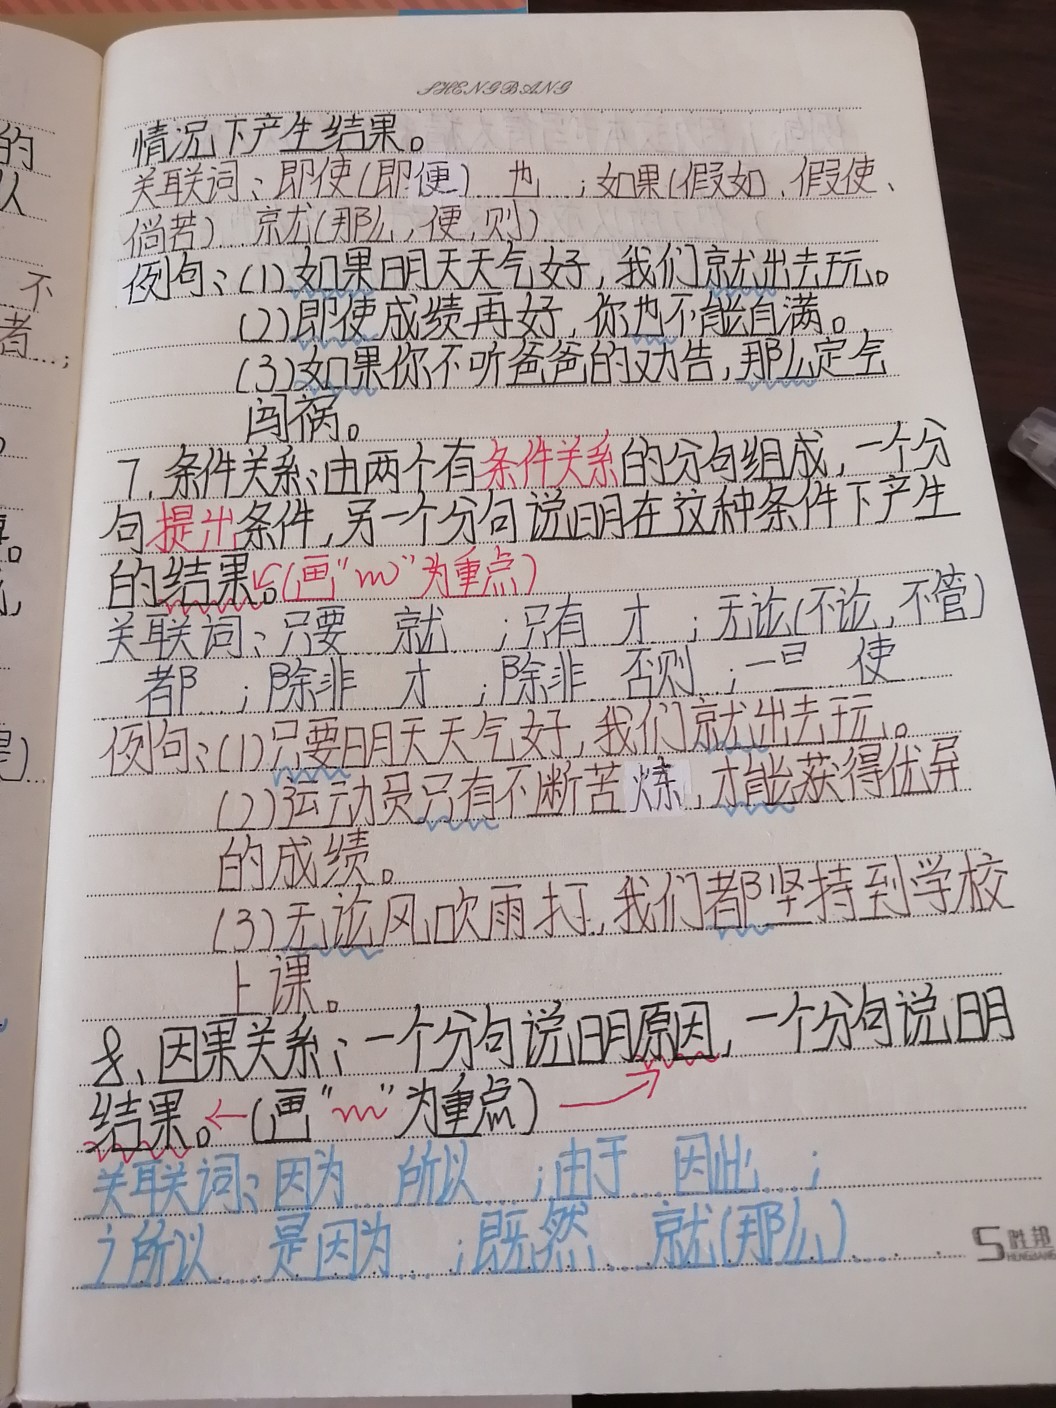 SHENGBANG
情况下产生结果。
关联词：即使(即便) 也 ；如果(假如、假使、
倘若)…就(那么，便，则)…
例句：(1)如果明天天气好，我们就出去玩。
(2)即使成绩再好，你也不能自满。
(3)如果你不听爸爸的劝告，那么定会
闯祸。
7、条件关系：由两个有条件关系的分句组成，一个分
句提出条件，另一个分句说明在这种条件下产生
的结果。(画"m"为重点)
关联词：只要 就 ；只有 才 ；无论(不论，不管)
都 ；除非 才 ；除非 否则 ；一旦 使
例句：(1)只要明天天气好，我们就出去玩。
(2)运动员只有不断苦炼，才能获得优异
的成绩。
(3)无论风吹雨打，我们都坚持到学校
上课。
8、因果关系：一个分句说明原因，一个分句说明
结果。←(画"m"为重点)
关联词：因为…所以…；由于 因此…；
之所以…是因为…；既然 就(那么)……
胜邦
的
从
不
者…；